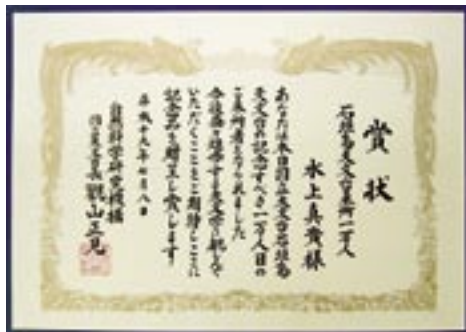 賞状
石垣島天文台来所一万人
水上真貴様
あなたは本日国立天文台石垣島
天文台の記念すべき一万人目の
ご来所者となられました
今後益々発展する天文学に親しんで
いただくことをご期待しここに
記念品を贈呈し賞します
平成十九年七月八日
自然科学研究機構
国立天文台長 観山正見